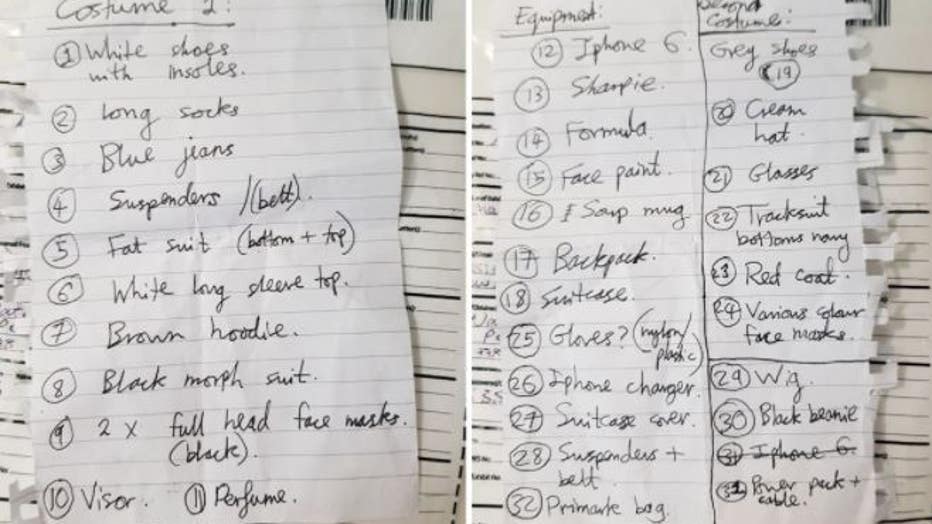 Costume 2:
① White shoes
with insoles.
② Long socks
③ Blue jeans
④ Suspenders /(belt).
⑤ Fat suit (bottom + top)
⑥ White long sleeve top.
⑦ Brown hoodie.
⑧ Black morph suit.
⑨ 2 x full head face masks.
(black).
⑩ Visor. ⑪ Perfume.
Equipment:
⑫ Iphone 6.
⑬ Sharpie.
⑭ Formula.
⑮ Face paint.
⑯ Soup mug
⑰ Backpack.
⑱ Suitcase.
㉕ Gloves? (nylon/
plastic)
㉖ Iphone charger.
㉗ Suitcase cover.
㉘ Suspenders +
belt
㉜ Primark bag.
Second
Costume:
Grey shoes
⑲
⑳ Cream
hat.
㉑ Glasses
㉒ Tracksuit
bottoms navy
㉓ Red coat.
㉔ Various colour
face masks.
㉙ Wig.
㉚ Black beanie
㉛ Iphone 6
Power pack +
cable.